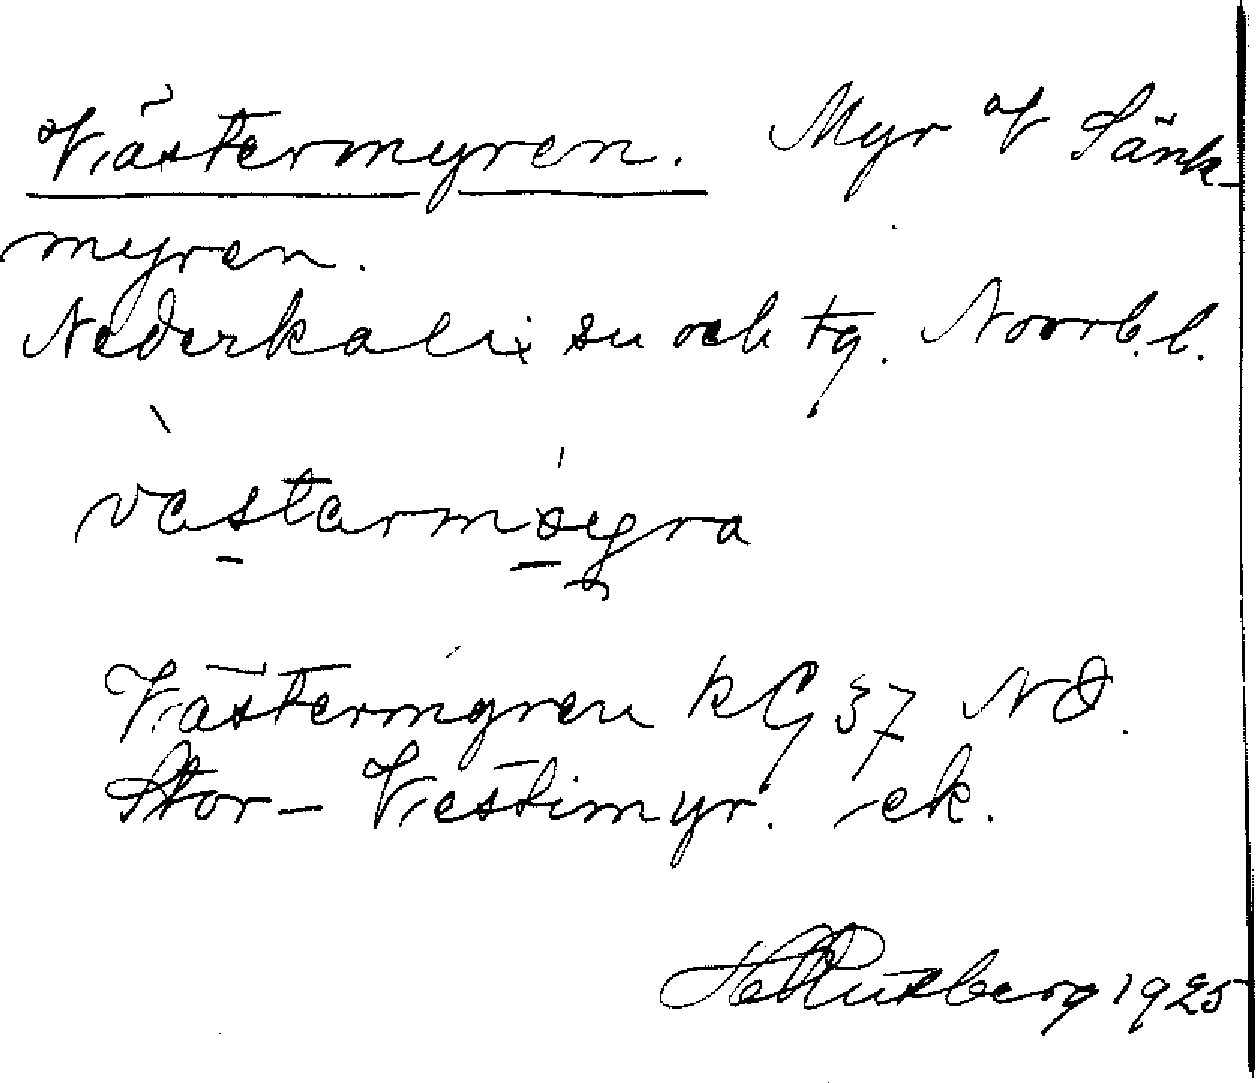 Västermyren. Myr V Sänk-
myren.
Nederkalix sn och tg. Norrb. l.
västarmøgra
Västermyren kG 37 NO.
Stor-Vestimyr. ek.
Hugo Rutberg 1925